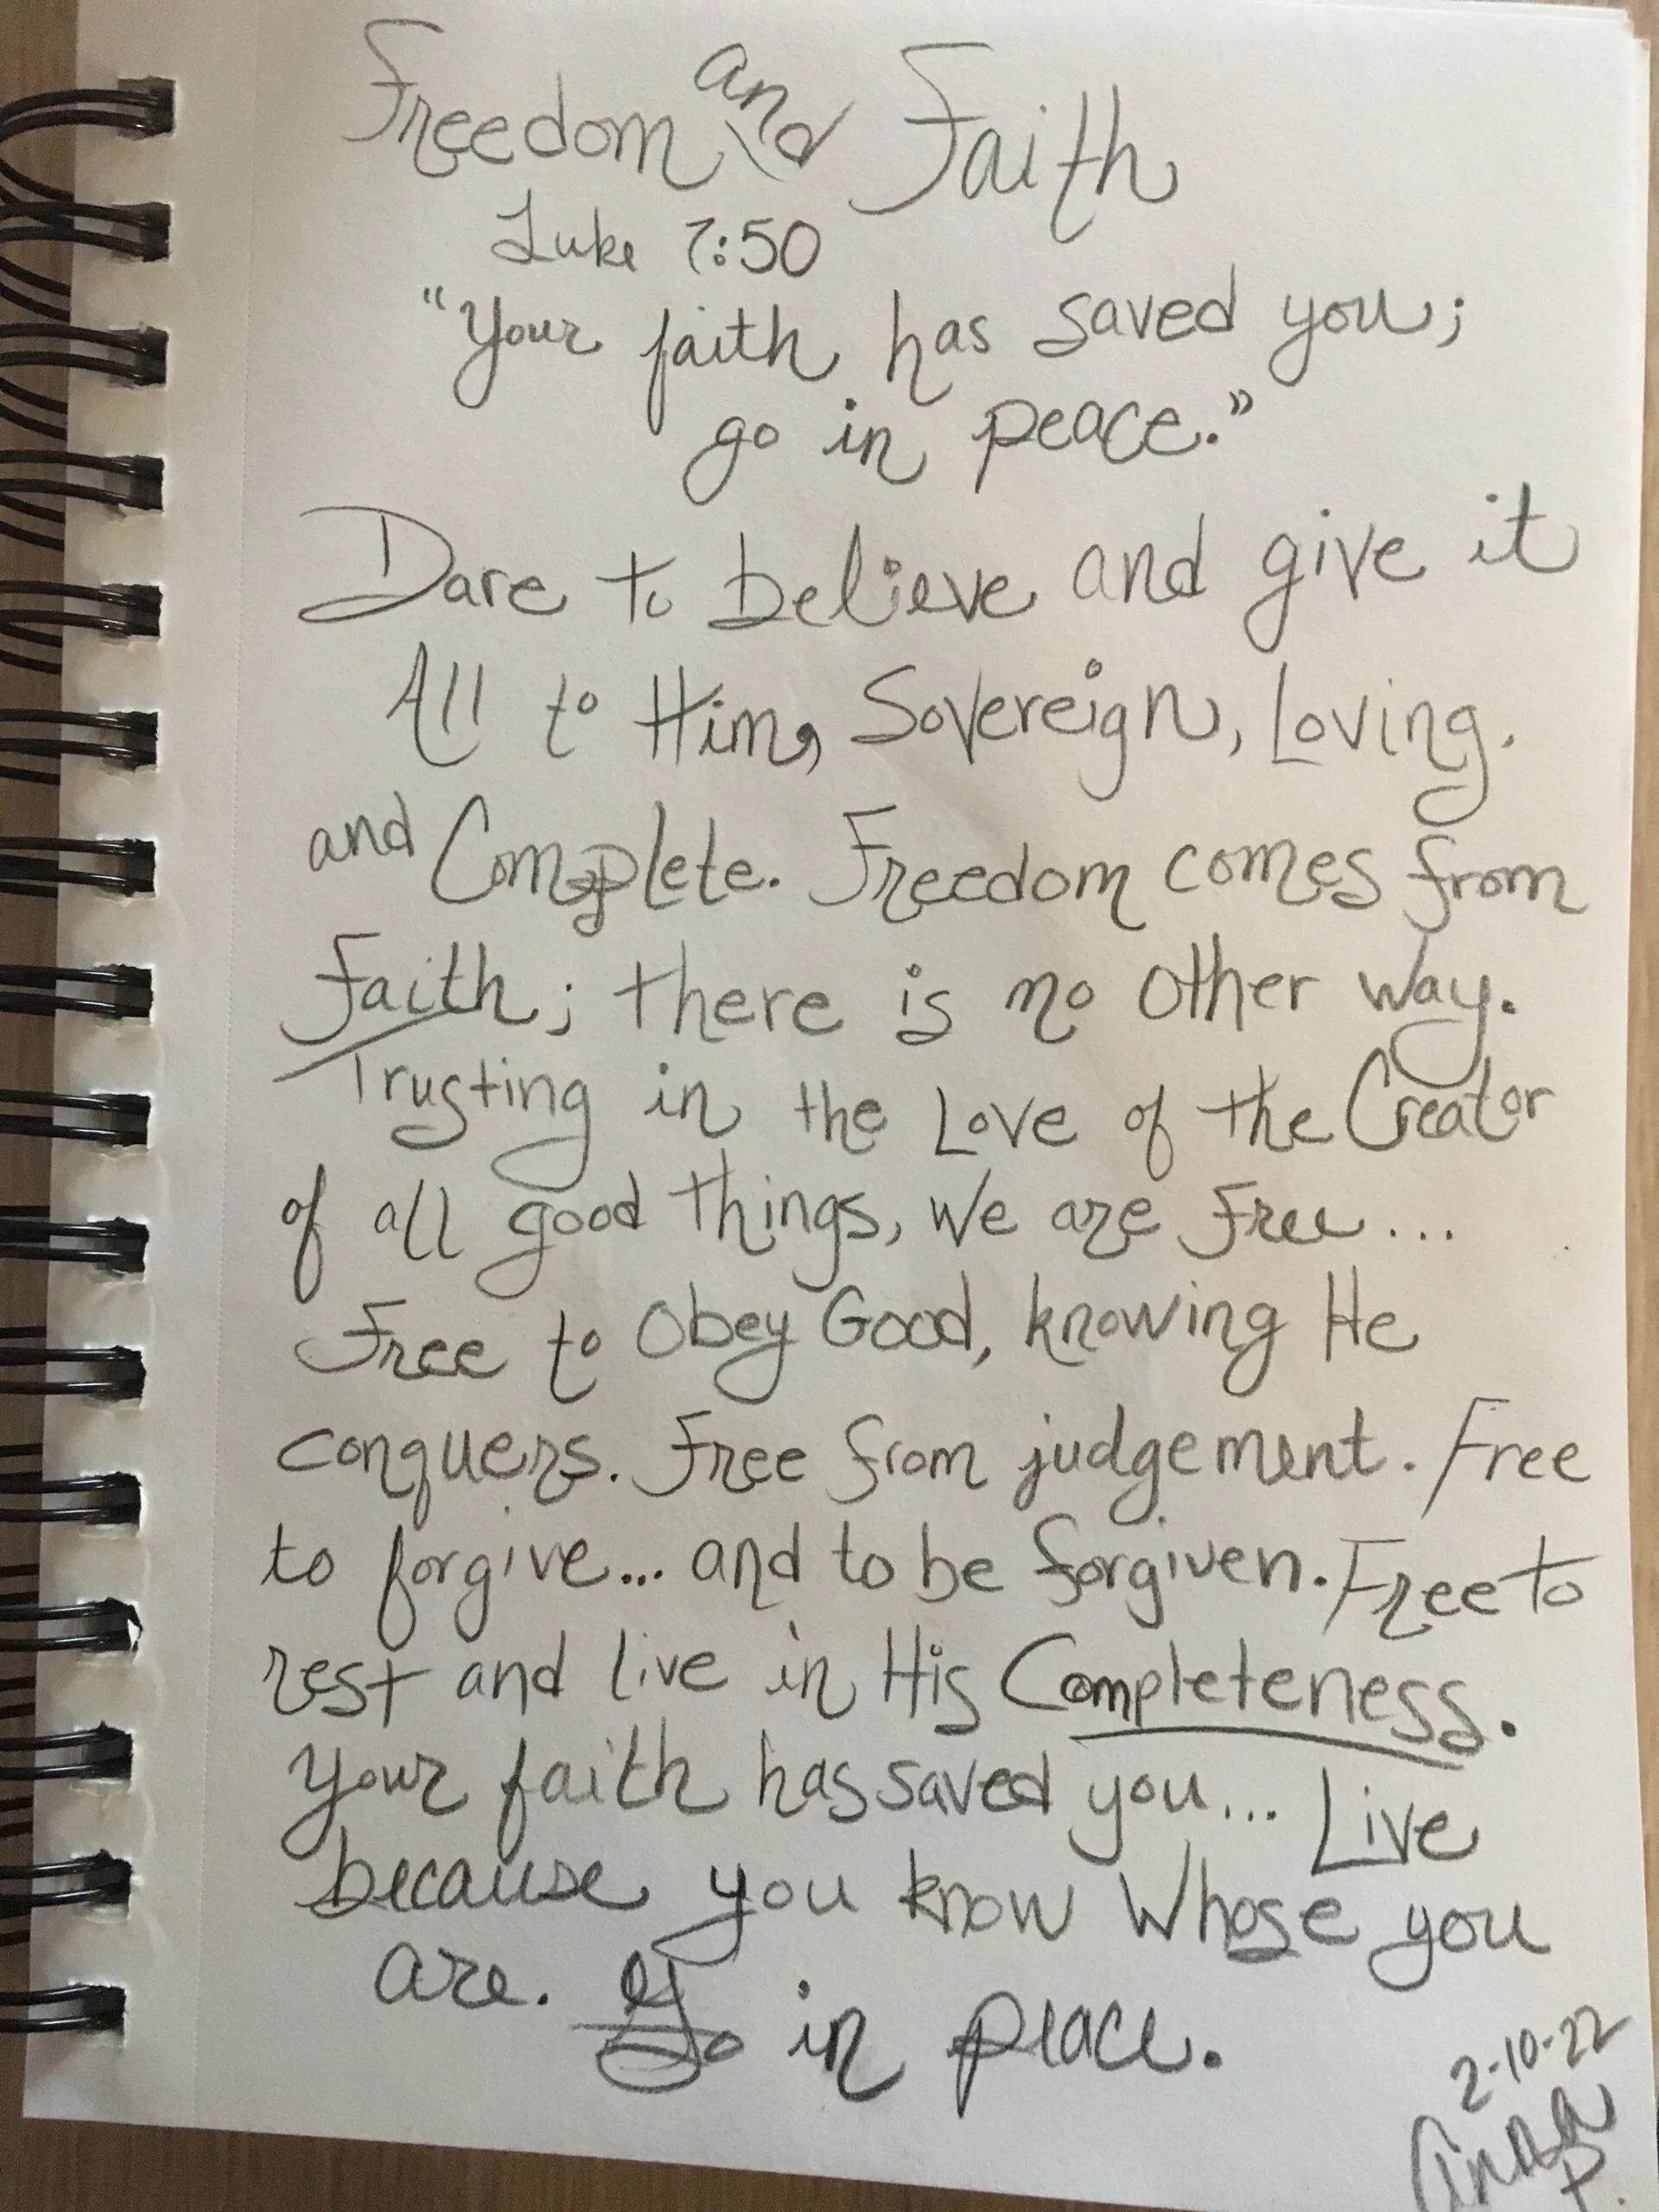 Freedom and Faith
Luke 7:50
"Your faith has saved you;
go in peace."
Dare to believe and give it
All to Him, Sovereign, Loving,
and Complete. Freedom comes from
Faith; there is no other way.
Trusting in the Love of the Creator
of all good things, we are Free...
Free to Obey Good, knowing He
conquers. Free from judgement. Free
to forgive... and to be forgiven. Free to
rest and live in His Completeness.
Your faith has saved you... Live
because you know Whose you
are. Go in peace.
2-10-22
P.